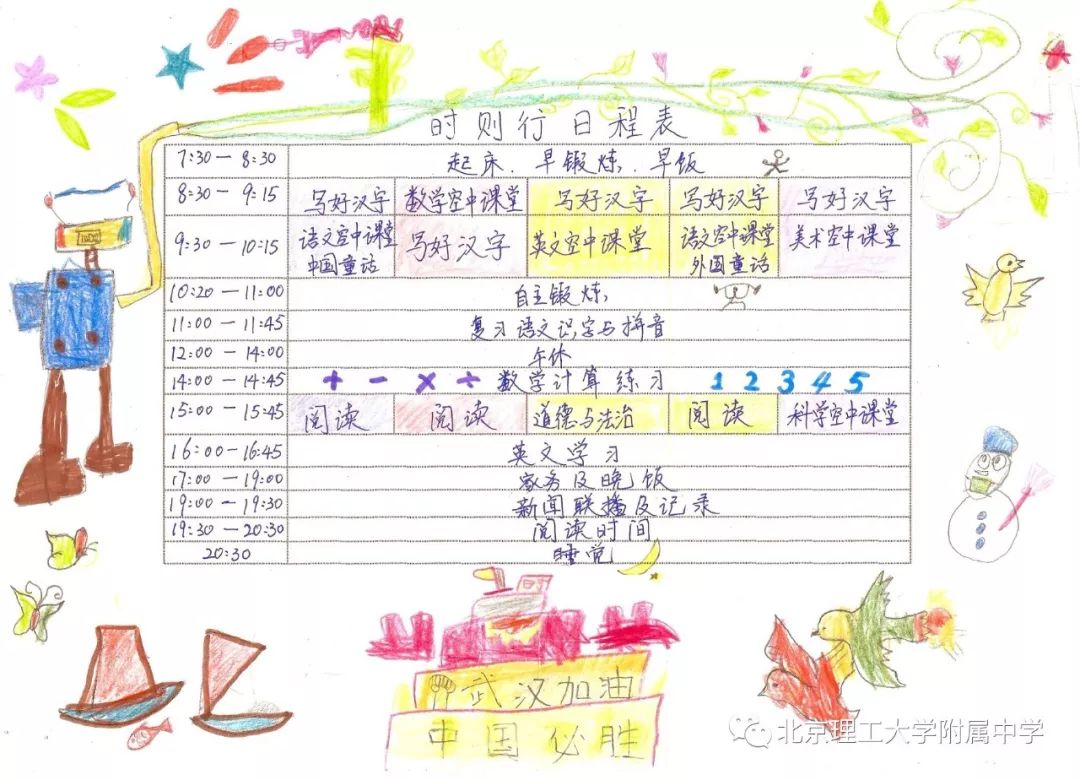 时则行日程表
7:30－8:30 起床、早锻炼、早饭
8:30－9:15 写好汉字 数学空中课堂 写好汉字 写好汉字 写好汉字
9:30－10:15 语文空中课堂 写好汉字 英文空中课堂 语文空中课堂 美术空中课堂
中国童话 外国童话
10:20－11:00 自主锻炼
11:00－11:45 复习语文识字与拼音
12:00－14:00 午休
14:00－14:45 + － × ÷ 数学计算练习 1 2 3 4 5
15:00－15:45 阅读 阅读 道德与法治 阅读 科学空中课堂
16:00－16:45 英文学习
17:00－19:00 家务及晚饭
19:00－19:30 新闻联播及记录
19:30－20:30 阅读时间
20:30 睡觉
武汉加油
中国必胜
北京理工大学附属中学